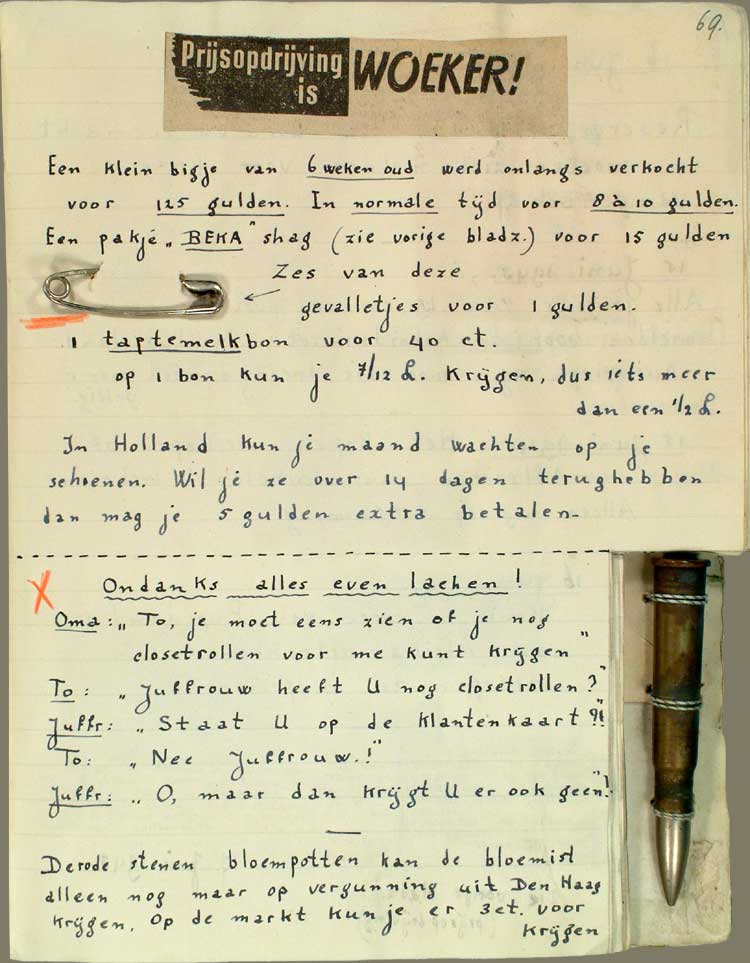 69.
Prijsopdrijving is WOEKER!
Een klein bigje van 6 weken oud werd onlangs verkocht
voor 125 gulden. In normale tijd voor 8 à 10 gulden.
Een pakje „BEKA" shag (zie vorige bladz.) voor 15 gulden
Zes van deze
gevalletjes voor 1 gulden.
1 taptemelkbon voor 40 ct.
op 1 bon kun je 7/12 L. krijgen, dus iets meer
dan een 1/2 L.
In Holland kun je maand wachten op je
schoenen. Wil je ze over 14 dagen terughebbon
dan mag je 5 gulden extra betalen-
X Ondanks alles even lachen!
Oma: „To, je moet eens zien of je nog
closetrollen voor me kunt krijgen"
To: „Juffrouw heeft U nog closetrollen?"
Juffr: „Staat U op de klantenkaart?!"
To: „Nee Juffrouw.!"
Juffr: „O, maar dan krijgt U er ook geen".
De rode stenen bloempotten kan de bloemist
alleen nog maar op vergunning uit Den Haag
krijgen. Op de markt kun je er 3 et. voor
krijgen